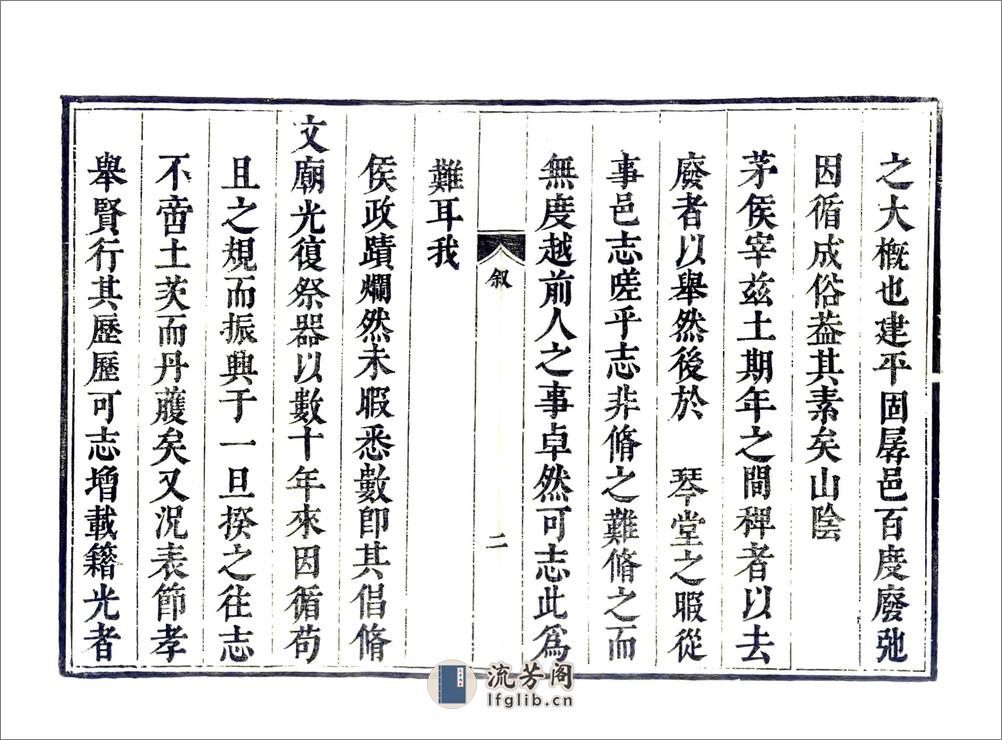 之大槪也建平固孱邑百度廢弛
因循成俗葢其素矣山陰
茅侯宰兹土期年之間稗者以去
廢者以舉然後於　琴堂之暇從
事邑志嗟乎志非脩之難脩之而
無度越前人之事卓然可志此爲
叙
二
難耳我
侯政蹟爛然未暇悉數卽其倡脩
文廟光復祭器以數十年來因循苟
且之規而振興于一旦揆之往志
不啻土茨而丹雘矣又況表節孝
舉賢行其歷歷可志增載籍光者
流芳阁
lfglib.cn